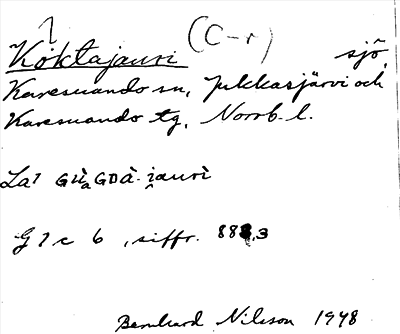 Köktajauri (C-r) sjö,
Karesuando sn, Jukkasjärvi och
Karesuando tg, Norrb. l.
La1 GUaGDÀ-i̭aurì
G 7 c 6, siffr. 888,3
Bernhard Nilsson 1948